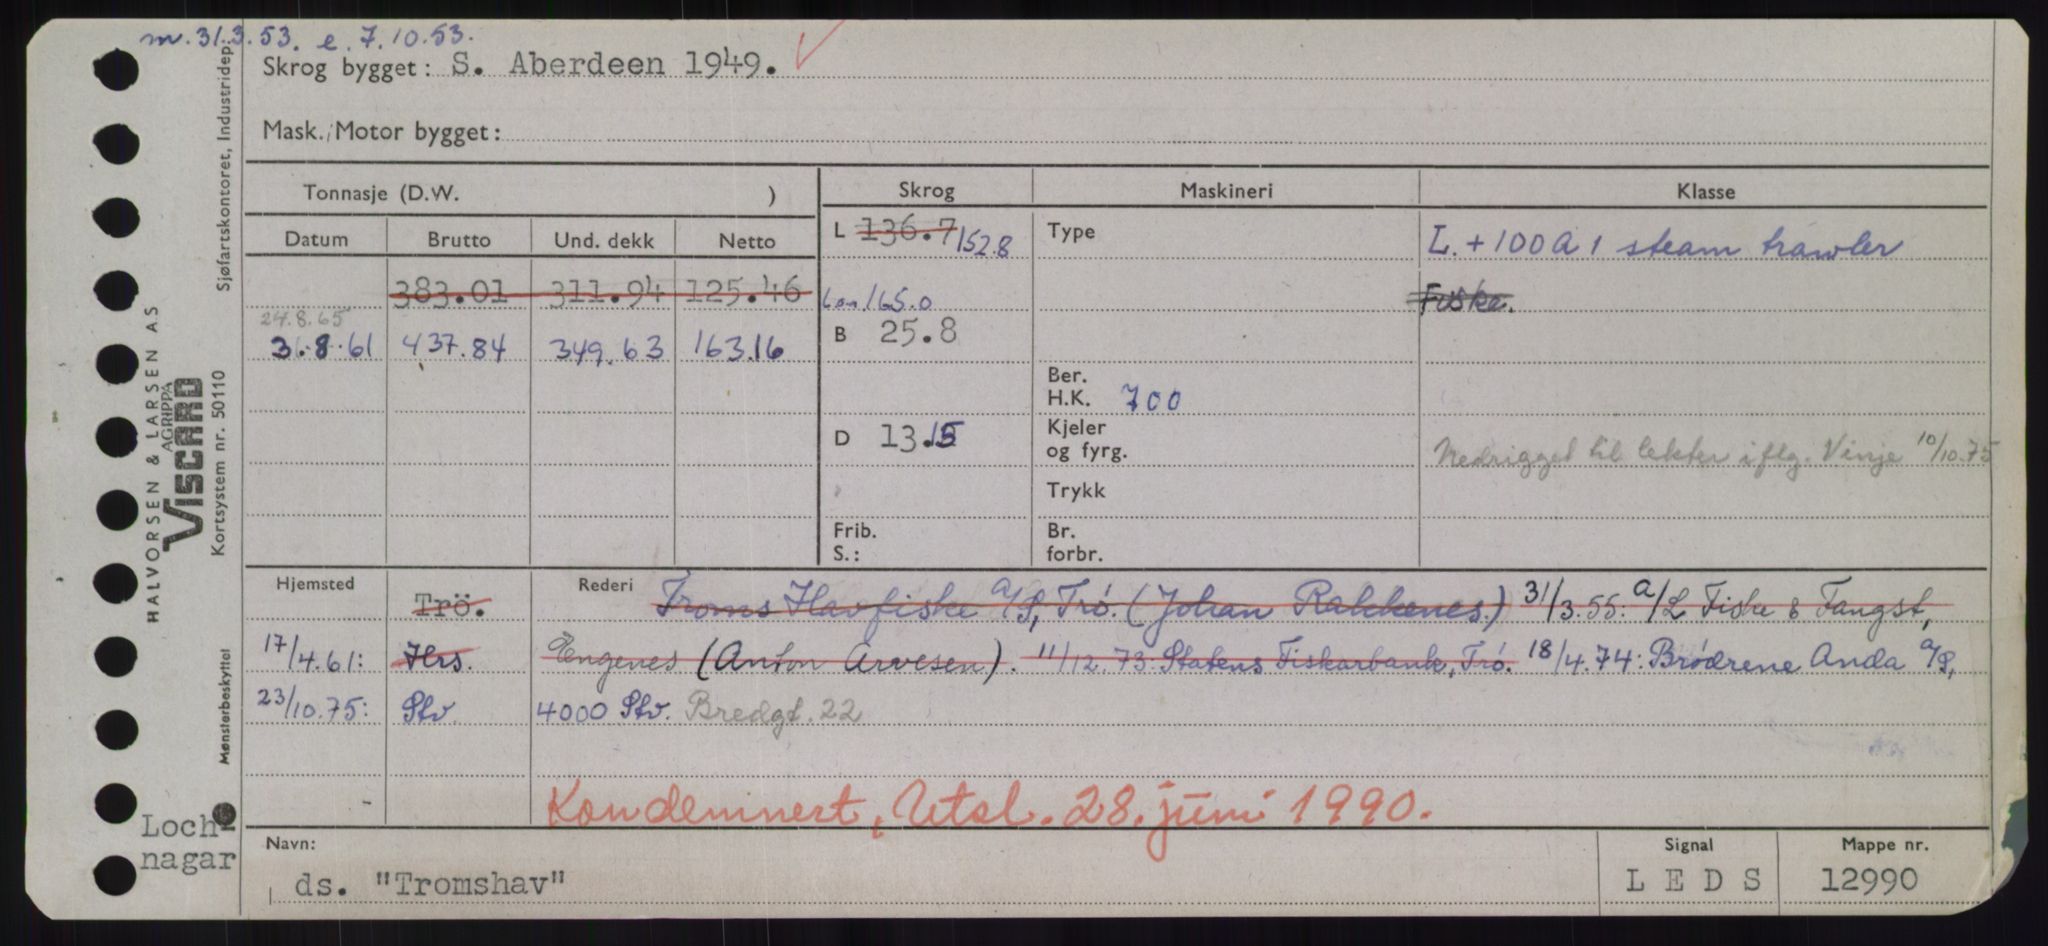 m. 31.3.53. e. 7.10.53.
Skrog bygget: S. Aberdeen 1949.
Mask./Motor bygget:
Tonnasje (D.W. )
Skrog
Maskineri
Klasse
Datum Brutto Und. dekk Netto
L 136.7 152.8
Type
L. + 100 A 1 steam trawler
383.01 311.94 125.46
Lon. 165.0
Fiske.
24.8.65
31.8.61 437.84 349.63 163.16
B 25.8
Ber.
H.K. 700
D 13.15
Kjeler
og fyrg.
Nedrigget til lekter iflg. Vinje 10/10.75
Trykk
Frib.
S.:
Br.
forbr.
Hjemsted Trö. Rederi Troms Havfiske A/S, Trö. (Johan Rakkenes.) 31/3.55: A/L Fiske & Fangst,
17/4.61: Hrs. Engenes (Anton Arvesen). 11/12.73: Statens Fiskarbank, Trö. 18/4.74: Brødrene Anda A/S,
23/10.75: Stv. 4000 Stv. Bredgt. 22
Kondemnert, Utsl. 28. juni 1990.
Loch-
nagar
Navn:
ds. "Tromshav"
Signal
L E D S
Mappe nr.
12990
Sjøfartskontoret, Industridep.
HALVORSEN & LARSEN AS
AGRIPPA
VISCARD
Kortsystem nr. 50110
Mønsterbeskyttet